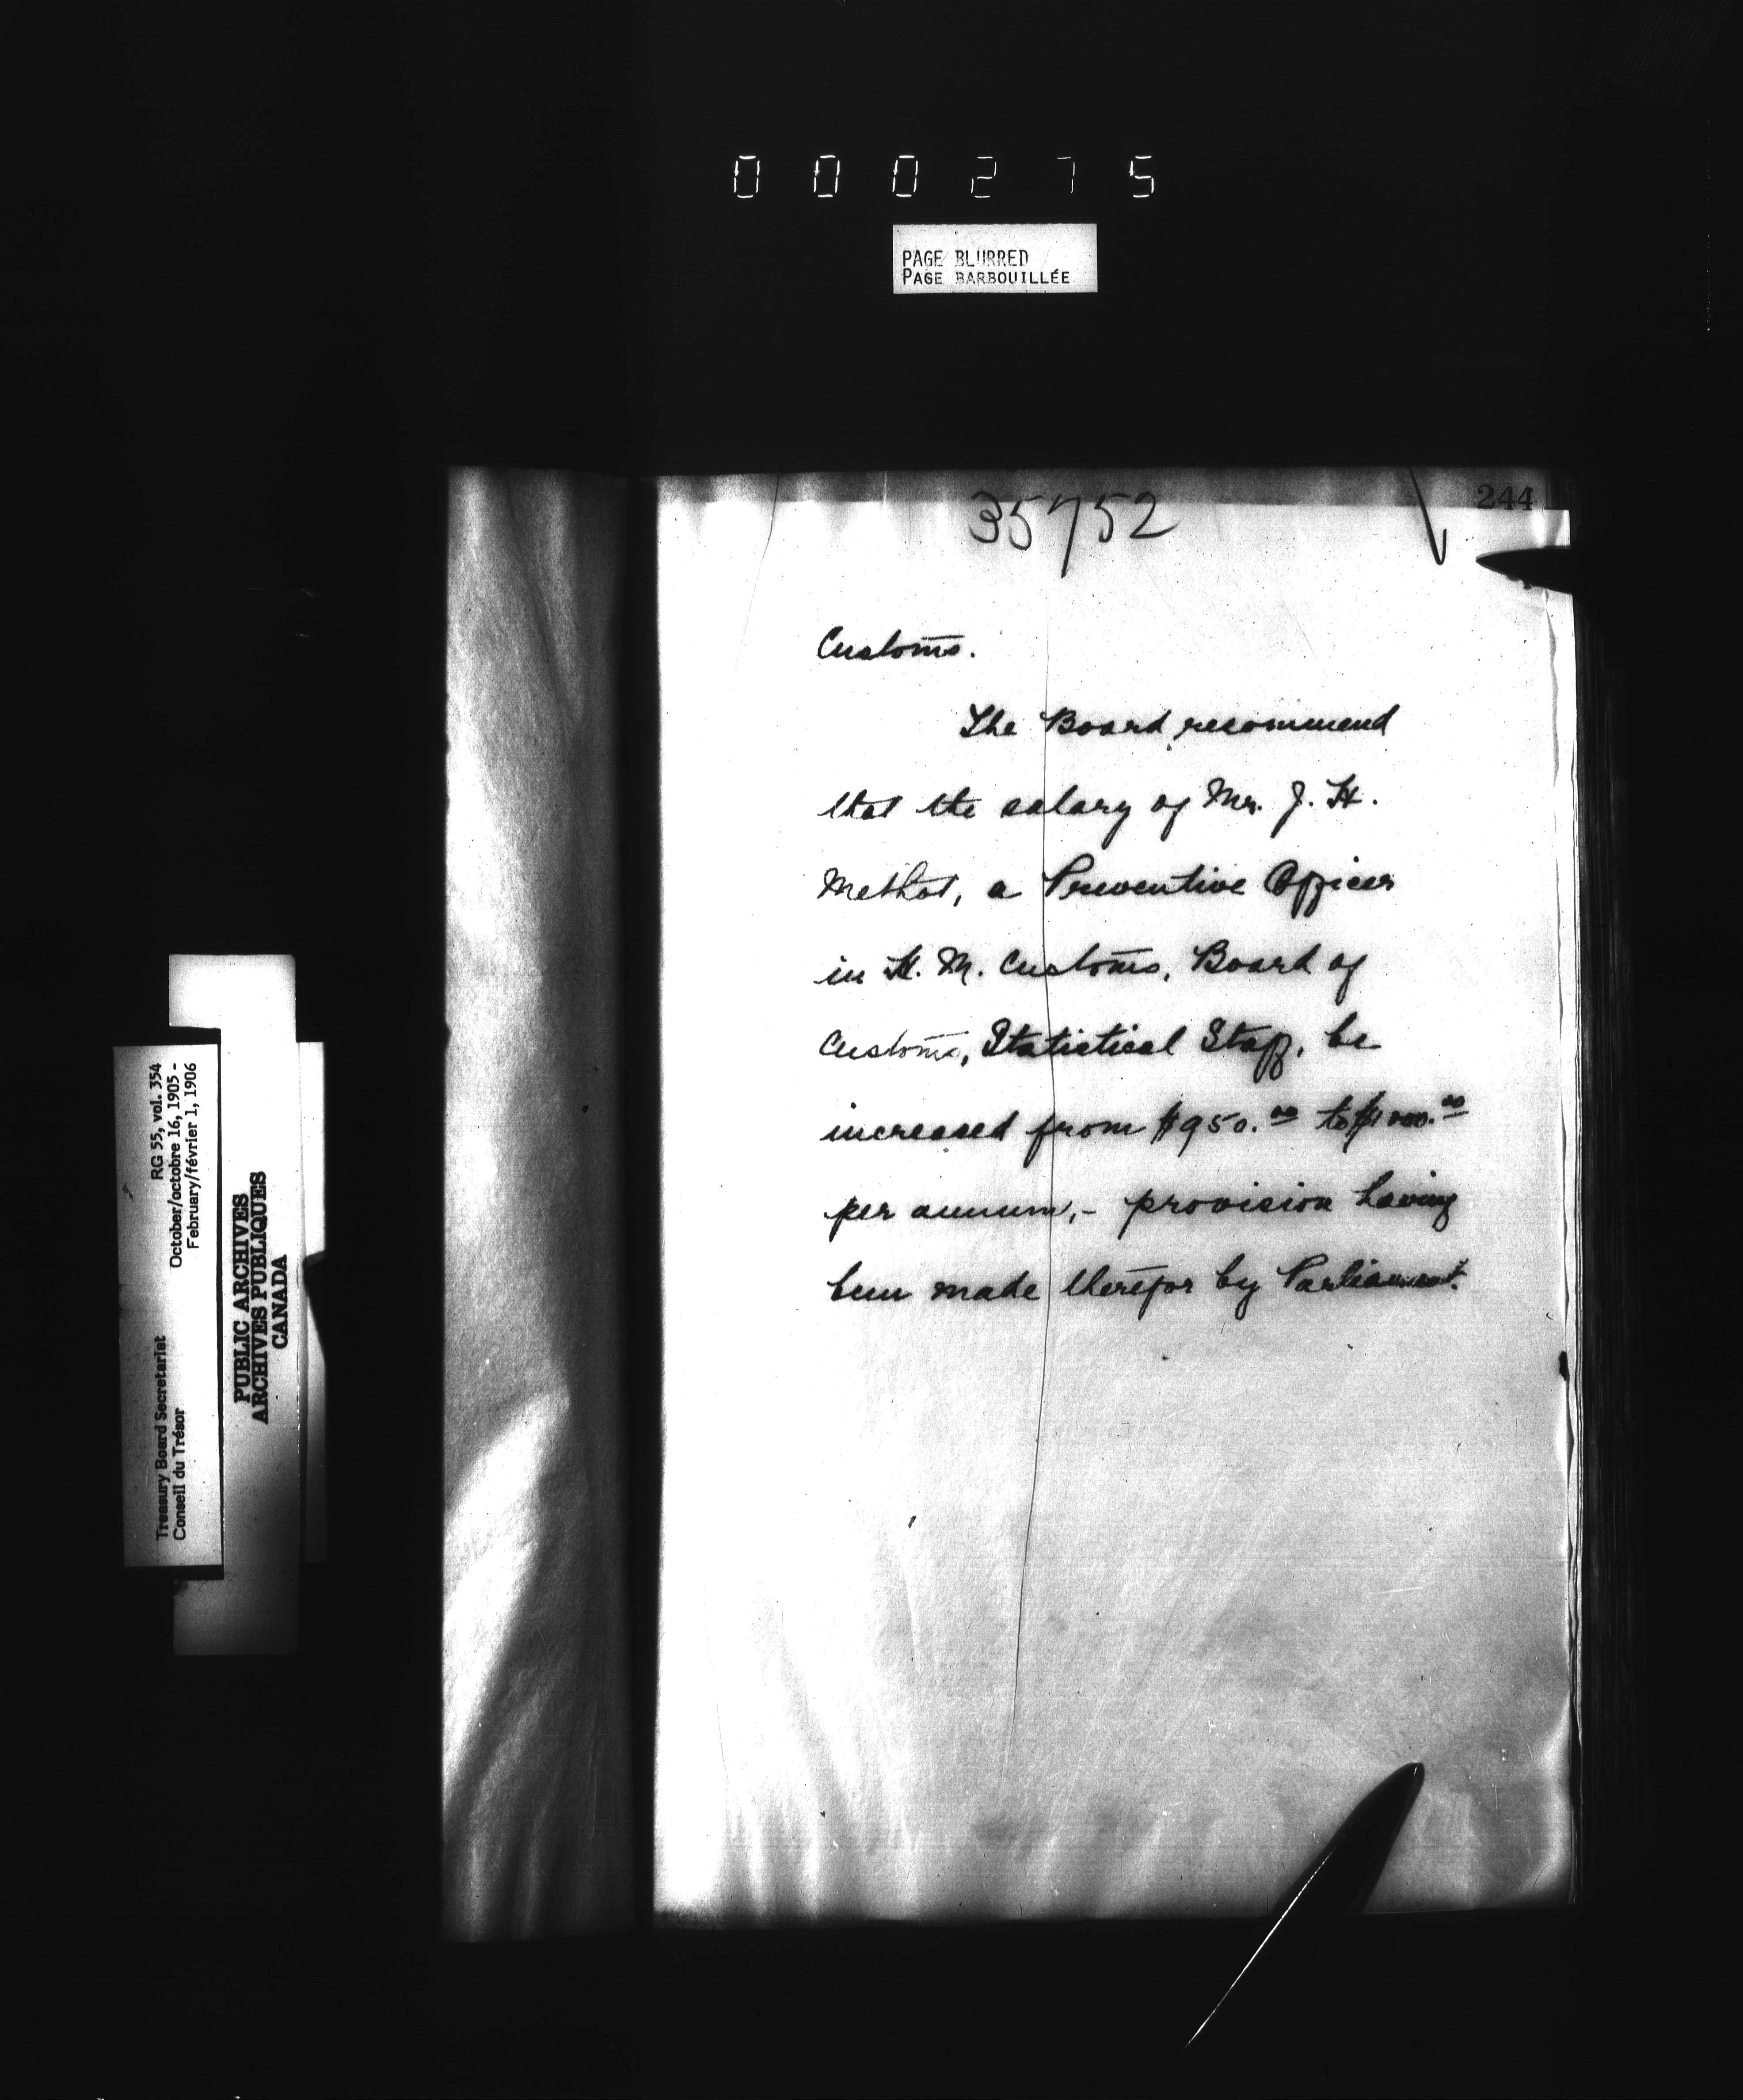 000275
PAGE BLURRED
PAGE BARBOUILLÉE
244
35752
Customs.
The Board recommend
that the salary of Mr. J. H.
Methot, a Preventive Officer
in H. M. Customs, Board of
Customs, Statistical Staff, be
increased from $950.00 to $1000.00
per annum,- provision having
been made therefor by Parliament.
RG 55, vol. 354
October/octobre 16, 1905 -
February/février 1, 1906
Treasury Board Secretariat
Conseil du Trésor
PUBLIC ARCHIVES
ARCHIVES PUBLIQUES
CANADA